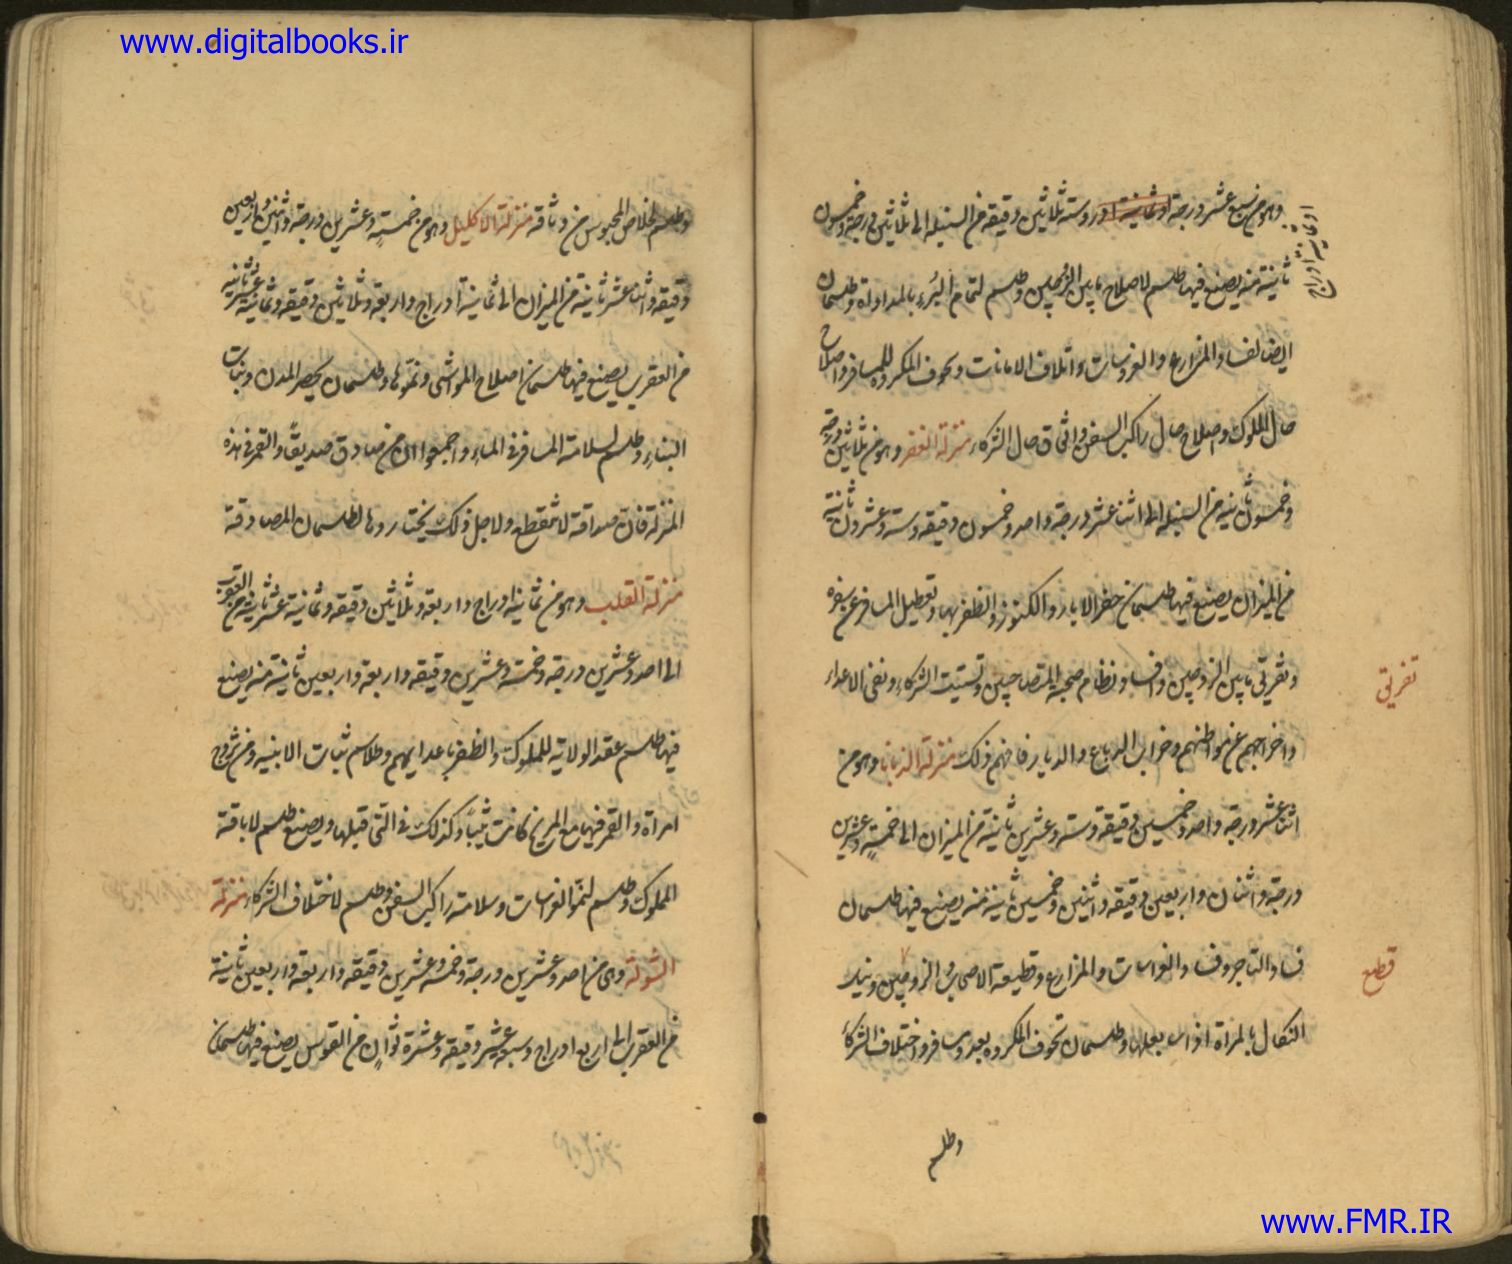 www.digitalbooks.ir
وهو من سبع عشر درجة وستة وثلاثين دقيقه من السنبله الى ثلاثين درجة وخمسون
اوثمانية ادراج
ثانية منه يصنع فيها طلسم لاصلاح بين الزوجين وطلسم لتمام البرء بالمداواة وطلسمان
ايضا لفساد المزارع والغروسات واتلاف الامانات وخوف المكروه للمسافر واصلاح
حال الملوك وصلاح حال راكب السفن واتفاق حال الشركاء منزلة الغفر وهو من ثلاثين درجة
وخمسون ثانيه من السنبله الى اثنا عشر درجة واحد وخمسون دقيقه وستة وعشرون ثانية
من الميزان يصنع فيها طلسمان حفر الابار والكنوز والظفر بها وتعطيل المسافر عن سفره
وتفريق بين الزوجين وافساد نظام صحبة المتصاحبين وتشتيت الشركاء ونفى الاعداء
تفريق
واخراجهم عن مواطنهم وخراب الرباع والديار فافهم ذلك منزلة الزبانا وهو من
اثنا عشر درجة واحد وخمسين دقيقه وستة وعشرين ثانية من الميزان الى خمسة وعشرين
درجة واثنان واربعين دقيقه واثنين وخمسين ثانية منه يصنع فيها طلسمان
فساد التاجر وفساد الغراسات والمزارع وقطيعة الاصحاب والزوجين ونيل
قطع
النكال بالمرأة اذا بعلها وطلسمان تخوف المكروه بعدو مسافر واختلاف الشركاء
وطلسم
وطلسم لخلاص المحبوس من وثاقه منزلة الاكليل وهو من خمسة وعشرين درجة واثنين واربعين
دقيقه واثنا عشر ثانية من الميزان الى ثمانية ادراج واربعة وثلاثين دقيقه وثمانية عشر ثانية
من العقرب يصنع فيها طلسمان اصلاح المواشى ونموها وطلسمان لحصر المدن وثبات
البناء وطلسم لسلامة المسافر فى الماء واجمعوا ان من صادق صديقًا والقمر فى هذه
المنزلة فان صداقته لا تنقطع ولاجل ذلك يختاروها لطلسمان المصادقة
منزلة القلب وهو من ثمانية ادراج واربعة وثلاثين دقيقه وثمانية عشر ثانية من العقرب
الى احد وعشرين درجة وخمسة وعشرين دقيقه واربعة واربعين ثانية منه يصنع
فيها طلسم عقد الولاية للملوك والظفر باعدايهم وطلاسم ثبات الابنيه ومن تزوج
امرأة والقمر فيها مع المريخ كانت ثيبًا وكذلك فى التى قبلها ويصنع طلسم لاباقة
المملوك وطلسم لنمو الغراسات وسلامة راكب السفن وطلسم لاختلاف الشركاء منزلة
الشولة وهى من احد وعشرين درجة وخمسة وعشرين دقيقه واربعة واربعين ثانية
من العقرب الى اربع ادراج وسبعة عشر دقيقه وعشرة ثوان من القوس يصنع فيها طلسمان
www.FMR.IR